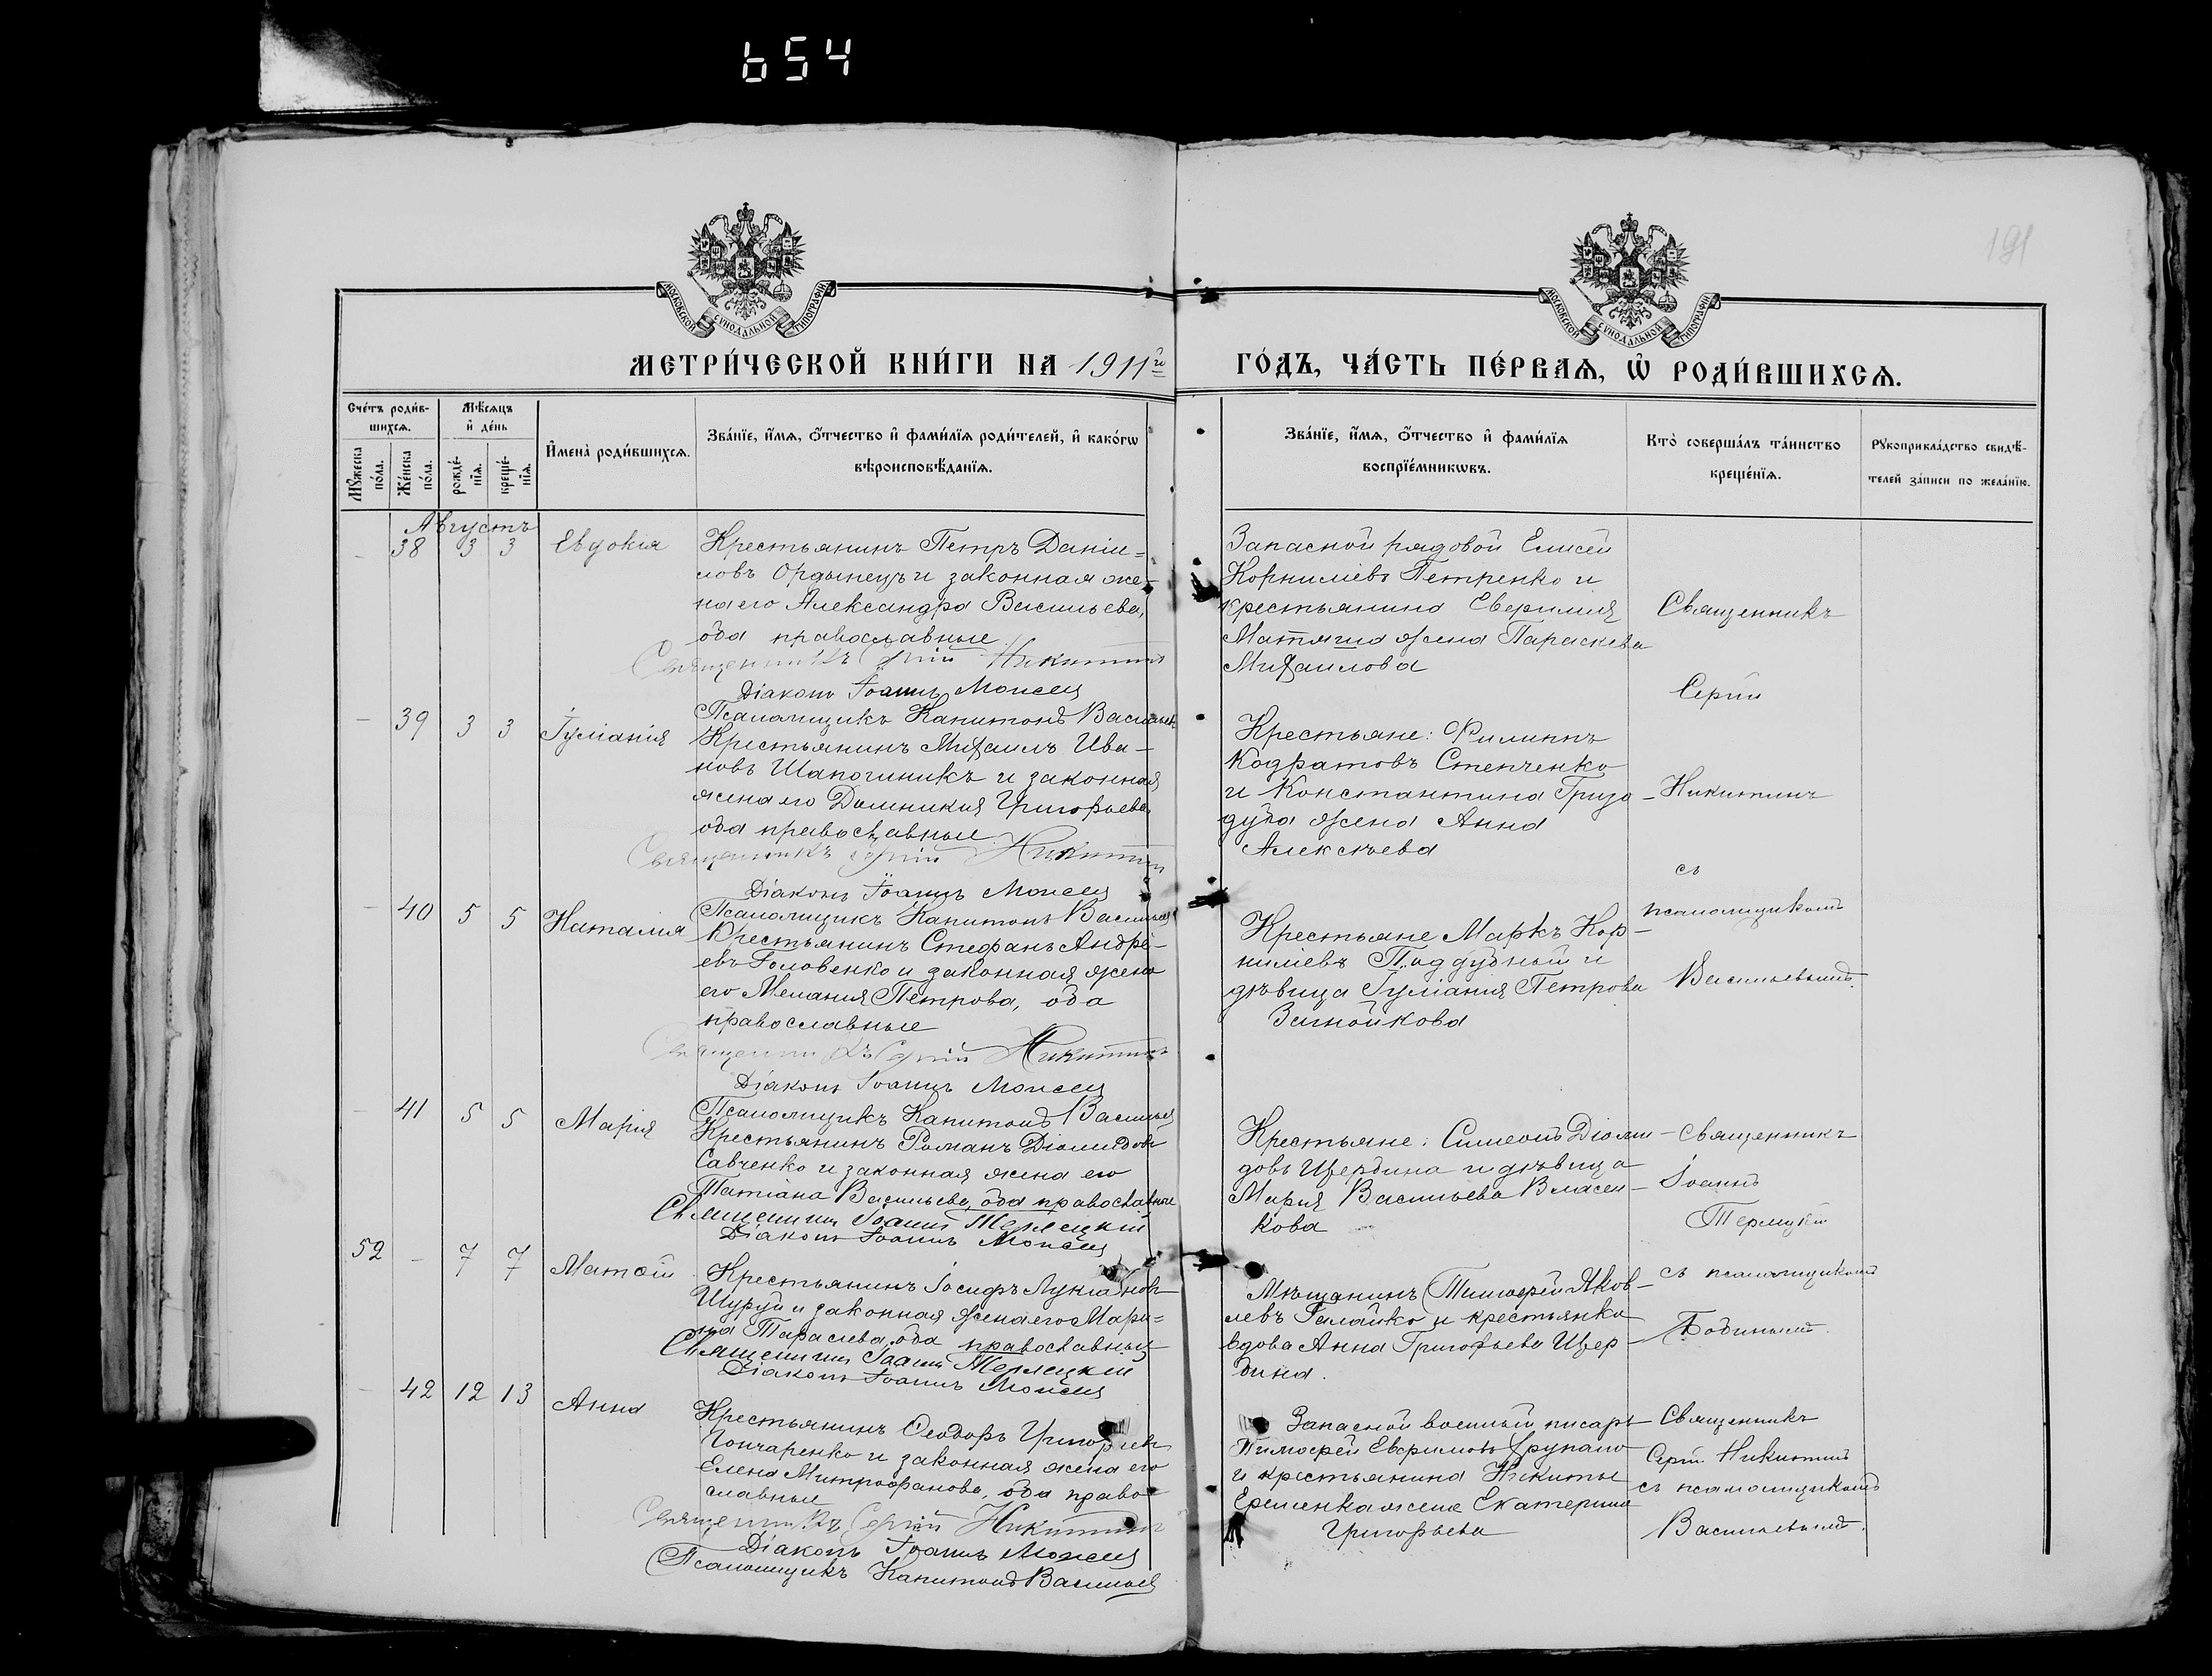 654
191
МОСКОВСКОЙ СѴНОДАЛЬНОЙ ТИПОГРАФІИ
МОСКОВСКОЙ СѴНОДАЛЬНОЙ ТИПОГРАФІИ
МЕТРИ́ЧЕСКОЙ КНИ́ГИ НА 1911го ГО́ДЪ, ЧА́СТЬ ПЕ́РВАѦ, Ѡ҆ РОДИ́ВШИХСѦ.
Сче́тъ роди́в-
шихсѧ.
Мꙋ́жеска
по́ла.
Же́нска
по́ла.
Мѣ́сѧцъ
и҆ де́нь
рожде́-
нїѧ.
креще́-
нїѧ.
И҆мена̀ роди́вшихсѧ.
Зва́нїе, и҆́мѧ, ѻ҆́тчество и҆ фами́лїѧ роди́телей, и҆ како́гѡ
вѣроисповѣ́данїѧ.
Зва́нїе, и҆́мѧ, ѻ҆́тчество и҆ фами́лїѧ
воспрїе́мникѡвъ.
Кто̀ соверша́лъ та́инство
креще́нїѧ.
Рꙋкоприкла́дство свидѣ́-
телей за́писи по жела́нїю.
Августъ
- 38 3 3 Евдокія
Крестьянинъ Петръ Даніи=
ловъ Ордынецъ и законная же-
на его Александра Васильева,
оба православные
Священникъ Сергій Никитинъ
Діаконъ Іоаннъ Моисей
Псаломщикъ Капитонъ Васильев
Запасной рядовой Елисей
Корниліевъ Петренко и
крестьянина
жена Параскева
Михаилова
Священникъ
Сергій
- 39 3 3 Іуліанія
Крестьянинъ Михаилъ Ива-
новъ Шапочникъ и законная
жена его Домникія Григорьева
оба православные
Священникъ Сергій Никитинъ
Діаконъ Іоаннъ Моисей
Псаломщикъ Капитонъ Васильев
Крестьяне: Филиппъ
Кодратовъ Степченко
и Константина Гризо-
дуба жена Анна
Алексѣева
Никитинъ
съ
псаломщикомъ
- 40 5 5 Наталія
Крестьянинъ Стефанъ Андре-
евъ Головенко и законная жена
его Меланія Петрова, оба
православные
Священникъ Сергій Никитинъ
Діаконъ Іоаннъ Моисей
Псаломщикъ Капитонъ Васильев
Крестьяне Маркъ Кор-
ниліевъ Поддубный и
дѣвица Іуліанія Петрова
Васильевымъ.
- 41 5 5 Марія
Крестьянинъ Романъ Діомидовъ
Савченко и законная жена его
Татіана Васильева, оба православные
Священникъ Іоаннъ Терлецкій
Діаконъ Іоаннъ Моисей
Крестьяне: Симеонъ Діоми-
довъ Щербина и дѣвица
Марія Васильева Власен-
кова
Священникъ
Іоаннъ
Терлецкій
52 - 7 7 Матѳій
Крестьянинъ Іосифъ Лукіановъ
Шуруй и законная жена его Мари=
на Тарасіева, оба православные
Священникъ Іоаннъ Терлецкій
Діаконъ Іоаннъ Моисей
Мѣщанинъ Тимоѳей Яков-
левъ Галайко и крестьянка
вдова Анна Григорьева Щер-
бина.
съ псаломщикомъ
- 42 12 13 Анна
Крестьянинъ Ѳеодоръ Григорьев
Гончаренко и законная жена его
Елена Митрофанова, оба право-
славные
Священникъ Сергій Никитинъ
Діаконъ Іоаннъ Моисей
Псаломщикъ Капитонъ Васильев
Запасной военный писарь
Тимоѳей Евфимовъ
и крестьянина Никиты
Еременка жена Екатерина
Григорьева
Священникъ
Сергій Никитинъ
съ псаломщикомъ
Васильевымъ.